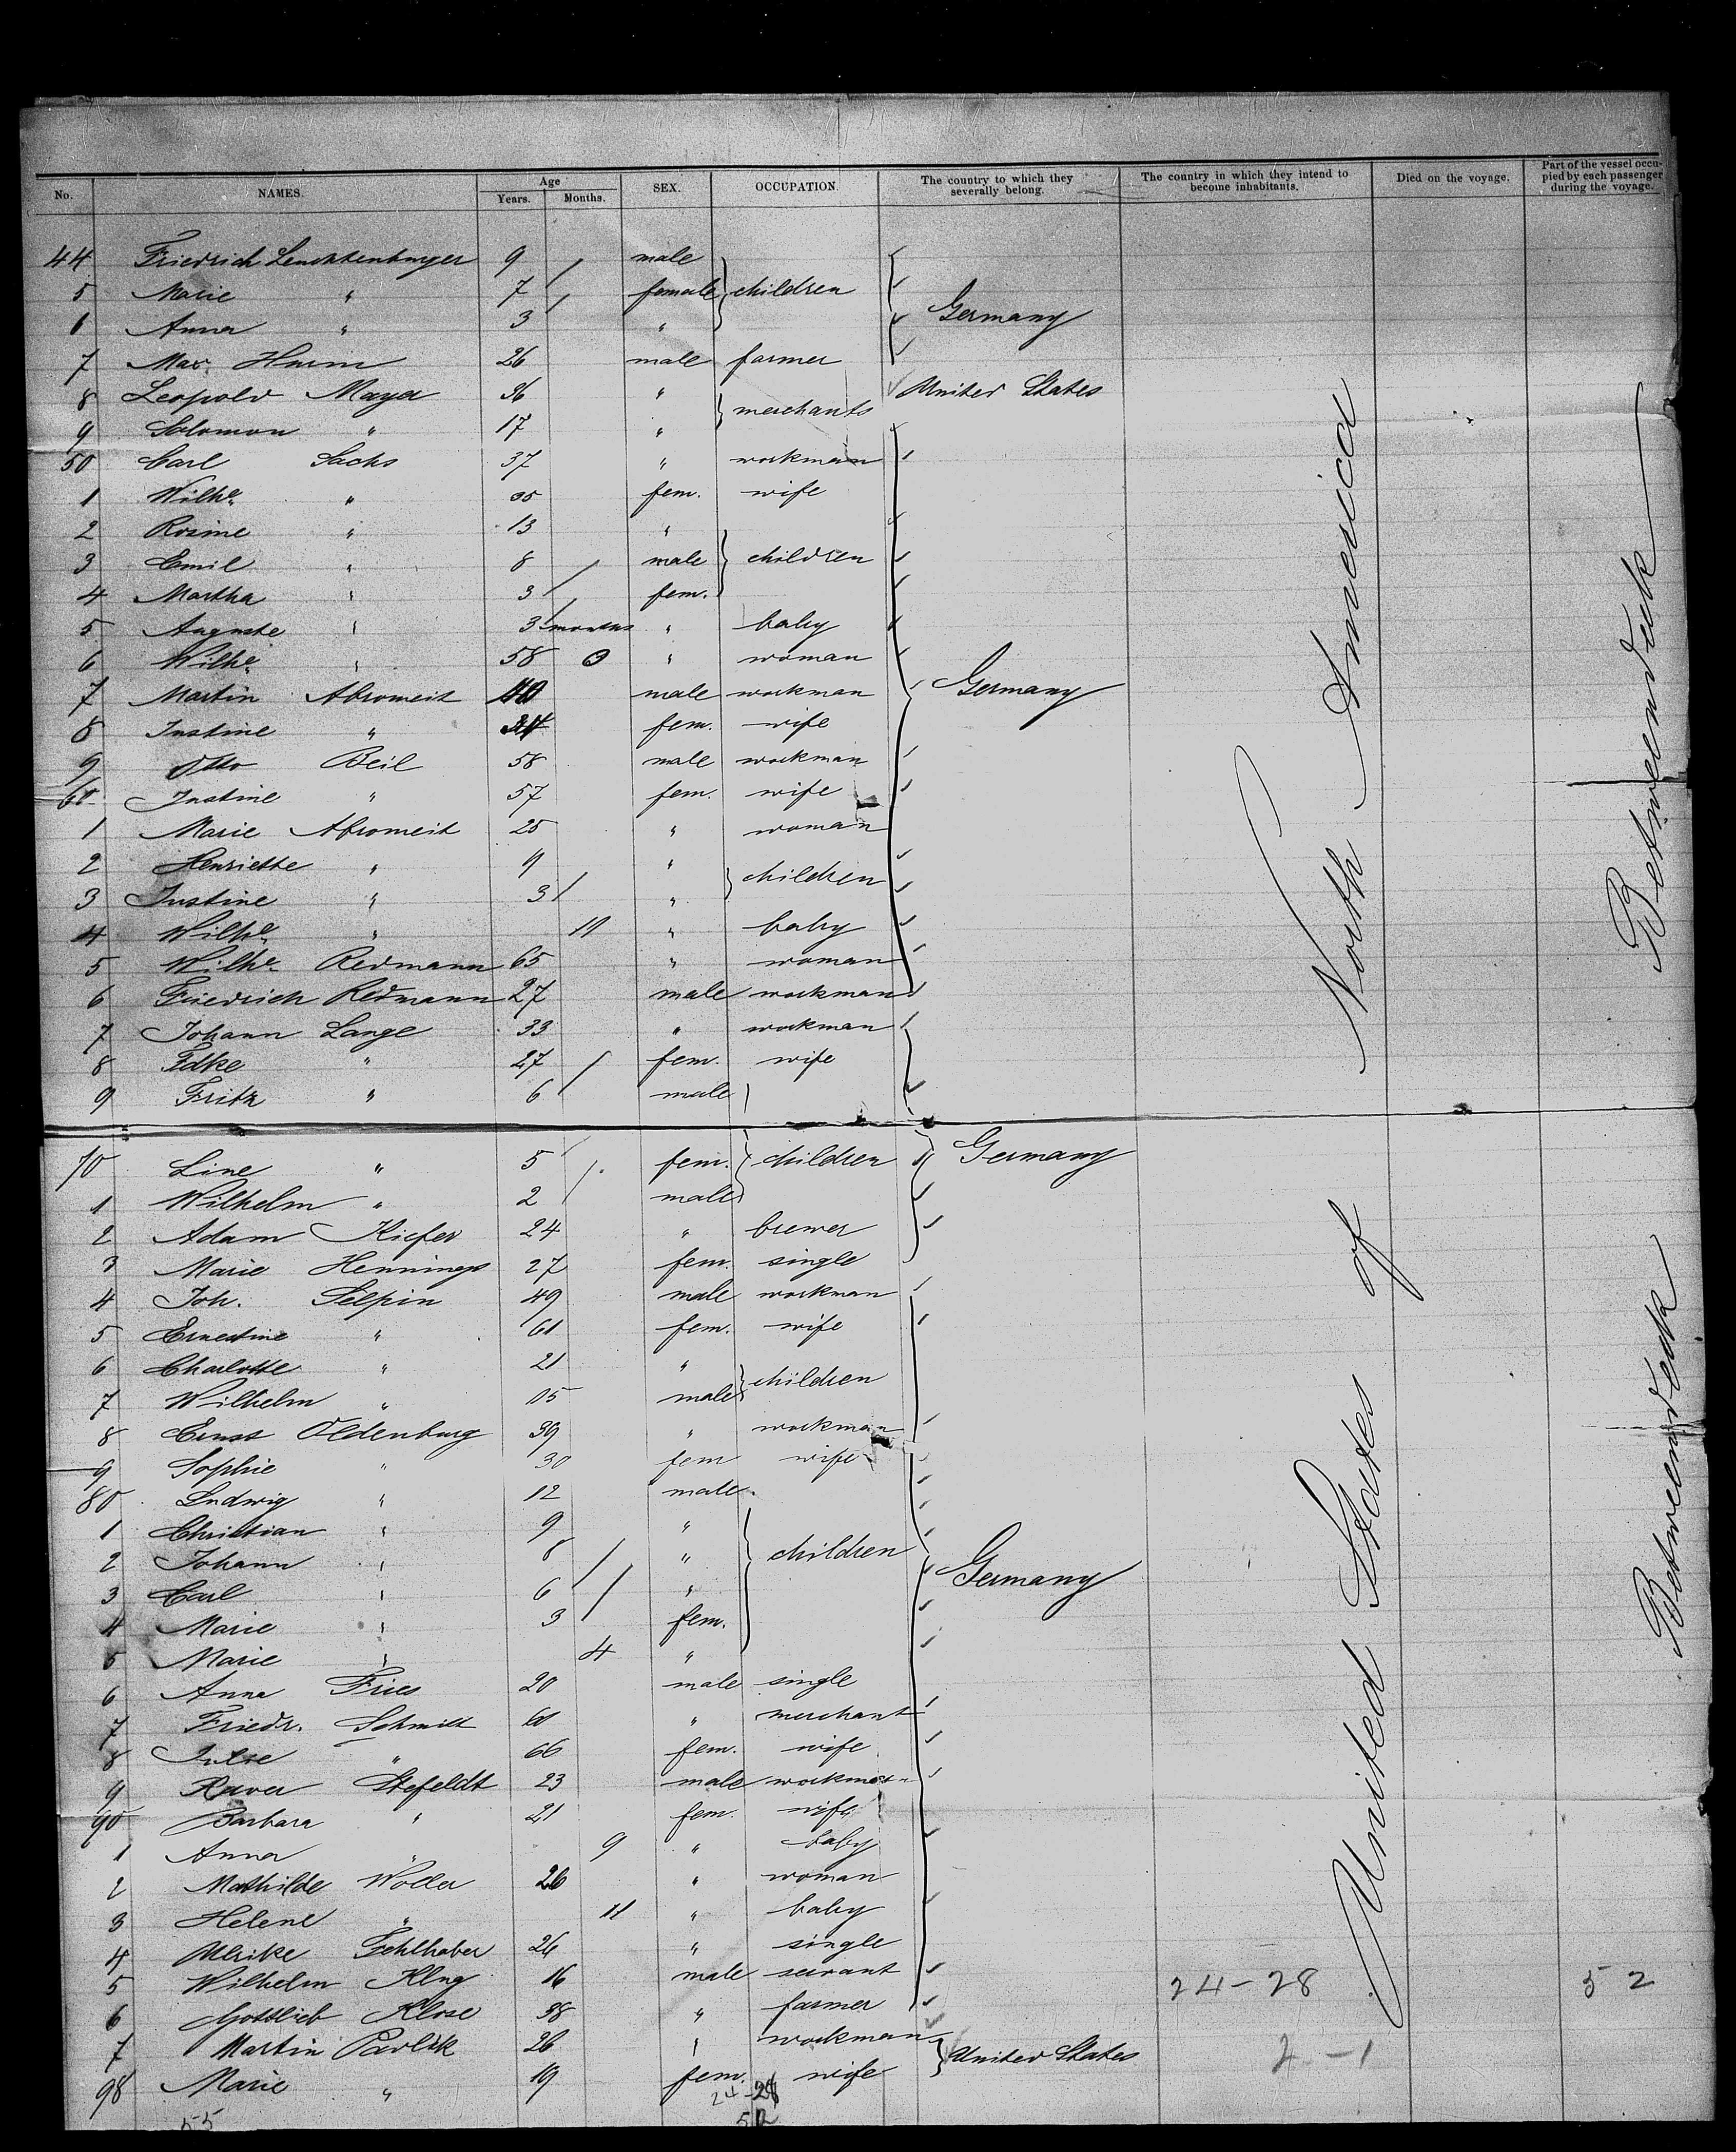 No. NAMES. Age Years. Months. SEX. OCCUPATION. The country to which they severally belong. The country in which they intend to become inhabitants. Died on the voyage. Part of the vessel occupied by each passenger during the voyage.
44 Friedrich Leuchtenburger 9 male
5 Marie " 7 female children
6 Anna " 3 " Germany
7 Max 26 male farmer
8 Leopold Mayer 36 " United States
9 Solomon " 17 " merchants
50 Carl Sachs 37 " workman
1 Wilhe. " fem. wife
2 Rosine " 13 "
3 Emil " 8 male children
4 Martha " 3 fem.
5 Auguste " 3 months " baby
6 Wilhe. " 58 " woman
7 Martin Abromeit 40 male workman Germany
8 Justine " fem. wife
9 Otto Beil 58 male workman
60 Justine " 57 fem. wife
1 Marie Abromeit 25 " woman
2 Henriette " 9 "
3 Justine " 3 " children
4 Wilhe. " " baby
5 Wilhe. Redmann 65 " woman
6 Friedrich Redmann 27 male workman
7 Johann Lange 33 " workman
8 " 27 fem. wife
9 Fritz " 6 male
70 Line " 5 fem. children Germany
1 Wilhelm " 2 male
2 Adam Kiefer 24 " brewer
3 Marie Hennings 27 fem. single
4 Joh. Selpin 49 male workman
5 Ernestine " 61 fem. wife
6 Charlotte " 21 " children
7 Wilhelm " 15 male
8 Ernst Oldenburg 39 " workman
9 Sophie " 30 fem wife
80 Ludwig " 12 male
1 Christian " 9 "
2 Johann " 8 " children
3 Carl " 6 " Germany
4 Marie " 3 fem.
5 Marie " 4 "
6 Anna Fries 20 male single
7 Friedr. Schmidt 61 " merchant
8 " 66 fem. wife
9 Stefeldt 23 male workman
90 Barbara " 21 fem. wife
1 Anna " 9 " baby
2 Mathilde Woller 26 " woman
3 Helene " 11 " baby
4 Ulrike Fehlhaber 26 " single
5 Wilhelm Klug 16 male servant
6 Gottlieb Klose 38 " farmer
7 Martin Pavlik 26 " workman
98 Marie " 19 fem. wife United States
United States of North America
Betweendeck
Betweendeck
24-28
52
2-1
24-28
52
55